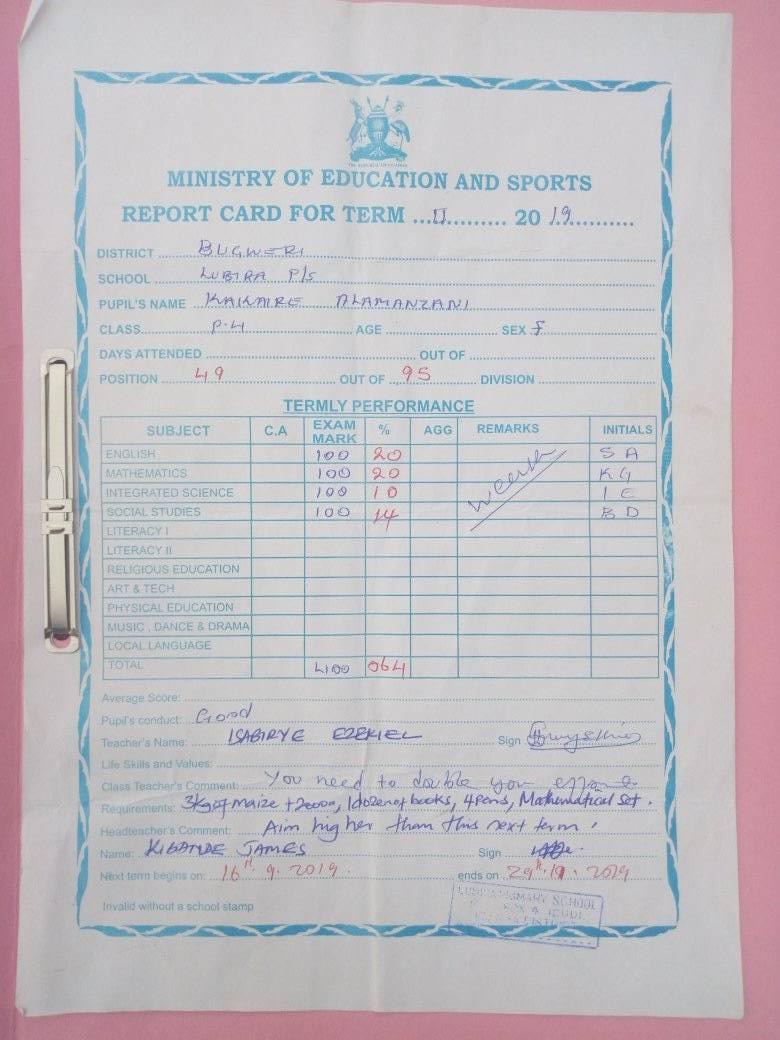 MINISTRY OF EDUCATION AND SPORTS
REPORT CARD FOR TERM ...II.......... 20 19............
DISTRICT BUGWERI
SCHOOL LUBIRA P/S
PUPIL'S NAME KAKAIRE ALAMANZANI
CLASS P.4 AGE SEX F
DAYS ATTENDED OUT OF
POSITION 49 OUT OF 95 DIVISION
TERMLY PERFORMANCE
SUBJECT C.A EXAM MARK % AGG REMARKS INITIALS
ENGLISH 100 20 S A
MATHEMATICS 100 20 K G
INTEGRATED SCIENCE 100 10 I E
SOCIAL STUDIES 100 14 B D
LITERACY I
LITERACY II
RELIGIOUS EDUCATION
ART & TECH
PHYSICAL EDUCATION
MUSIC , DANCE & DRAMA
LOCAL LANGUAGE
TOTAL 400 064
Average Score:
Pupil's conduct: Good
Teacher's Name: ISABIRYE EZEKIEL Sign
Life Skills and Values:
Class Teacher's Comment: You need to double your
Requirements: 3kg of maize + 2000=, 1 dozen of books, 4 pens, Mathematical set.
Headteacher's Comment: Aim higher than this next term.
Name: KIBANDE JAMES Sign
Next term begins on: 16th. 9. 2019. ends on 29th. 11. 2019
Invalid without a school stamp
PRIMARY SCHOOL